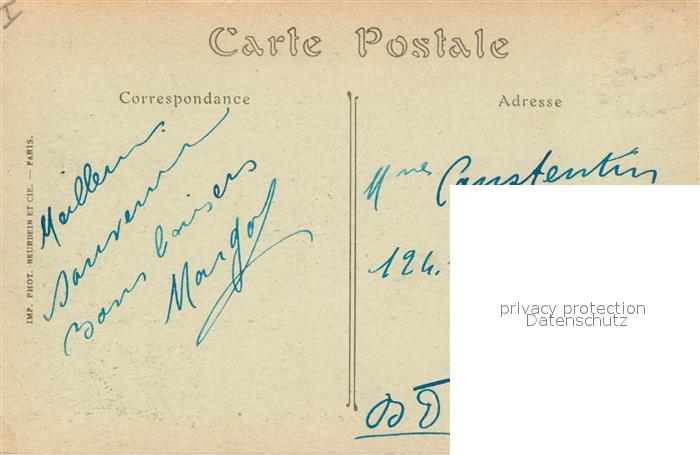 Carte Postale
Correspondance
Adresse
IMP. PHOT. NEURDEIN ET CIE. — PARIS.
Meilleur
Souvenir
Bons baisers
Margot
Mmes Constentin
124.
Bd
privacy protection
Datenschutz